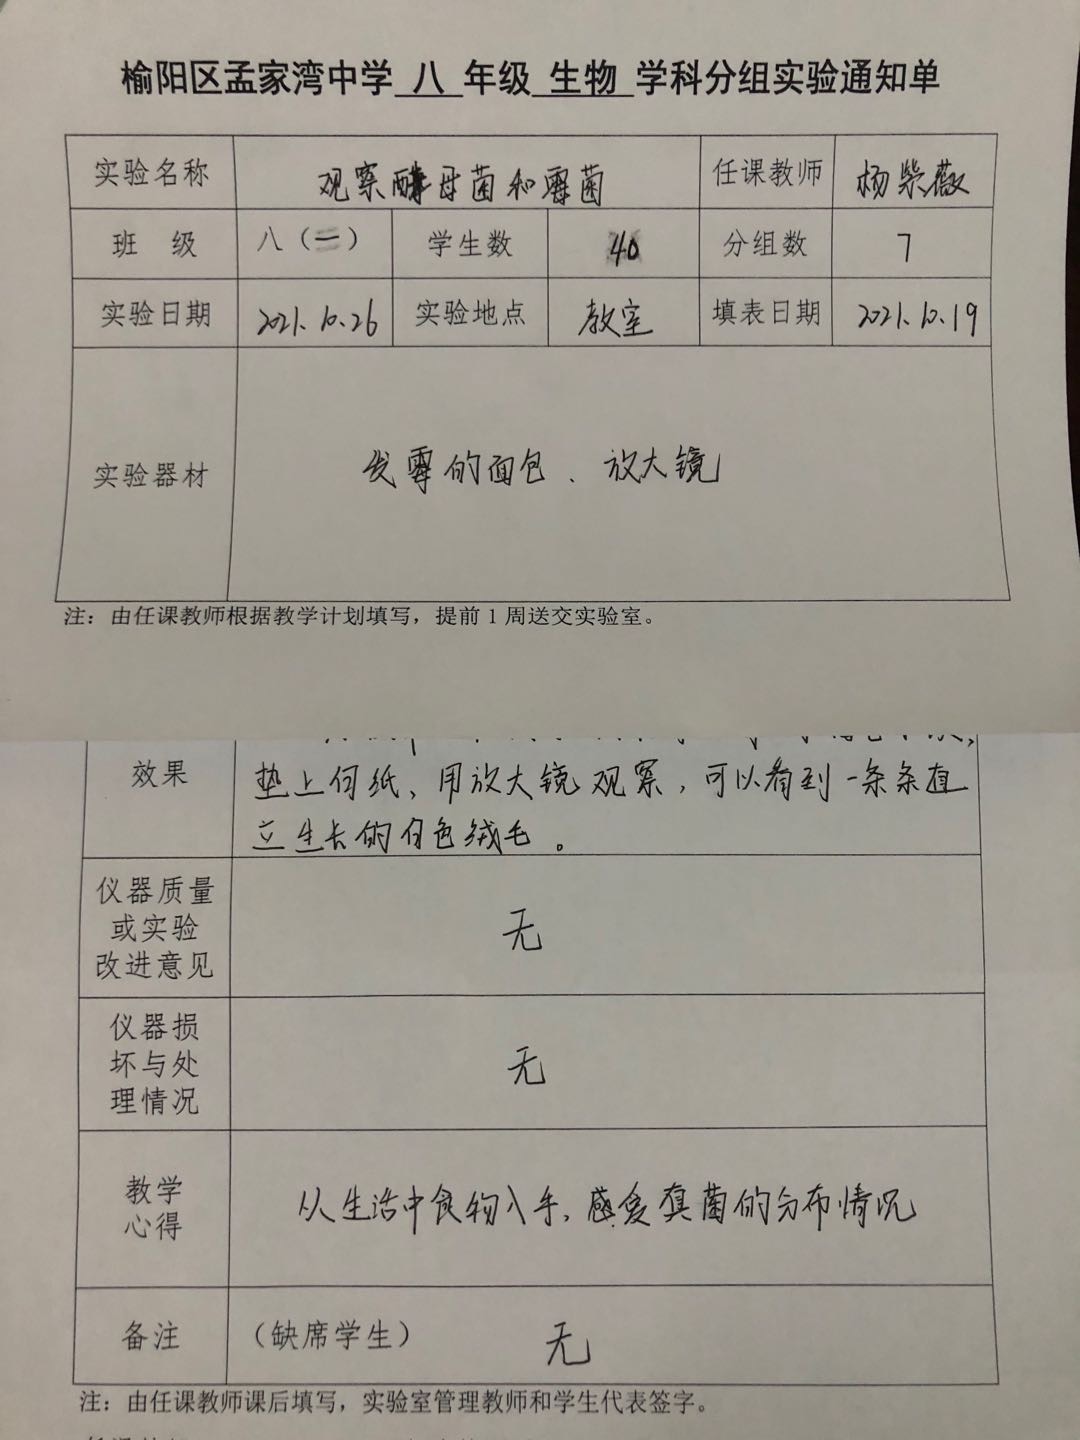 榆阳区孟家湾中学 八 年级 生物 学科分组实验通知单
实验名称 观察酵母菌和霉菌 任课教师 杨紫薇
班 级 八（二） 学生数 40 分组数 7
实验日期 2021.10.26 实验地点 教室 填表日期 2021.10.19
实验器材 发霉的面包、放大镜
注：由任课教师根据教学计划填写，提前1周送交实验室。
效果
垫上何纸、用放大镜观察，可以看到一条条直
立生长的白色绒毛。
仪器质量
或实验
改进意见
无
仪器损
坏与处
理情况
无
教学
心得
从生活中食物入手，感受真菌的分布情况
备注 （缺席学生） 无
注：由任课教师课后填写，实验室管理教师和学生代表签字。